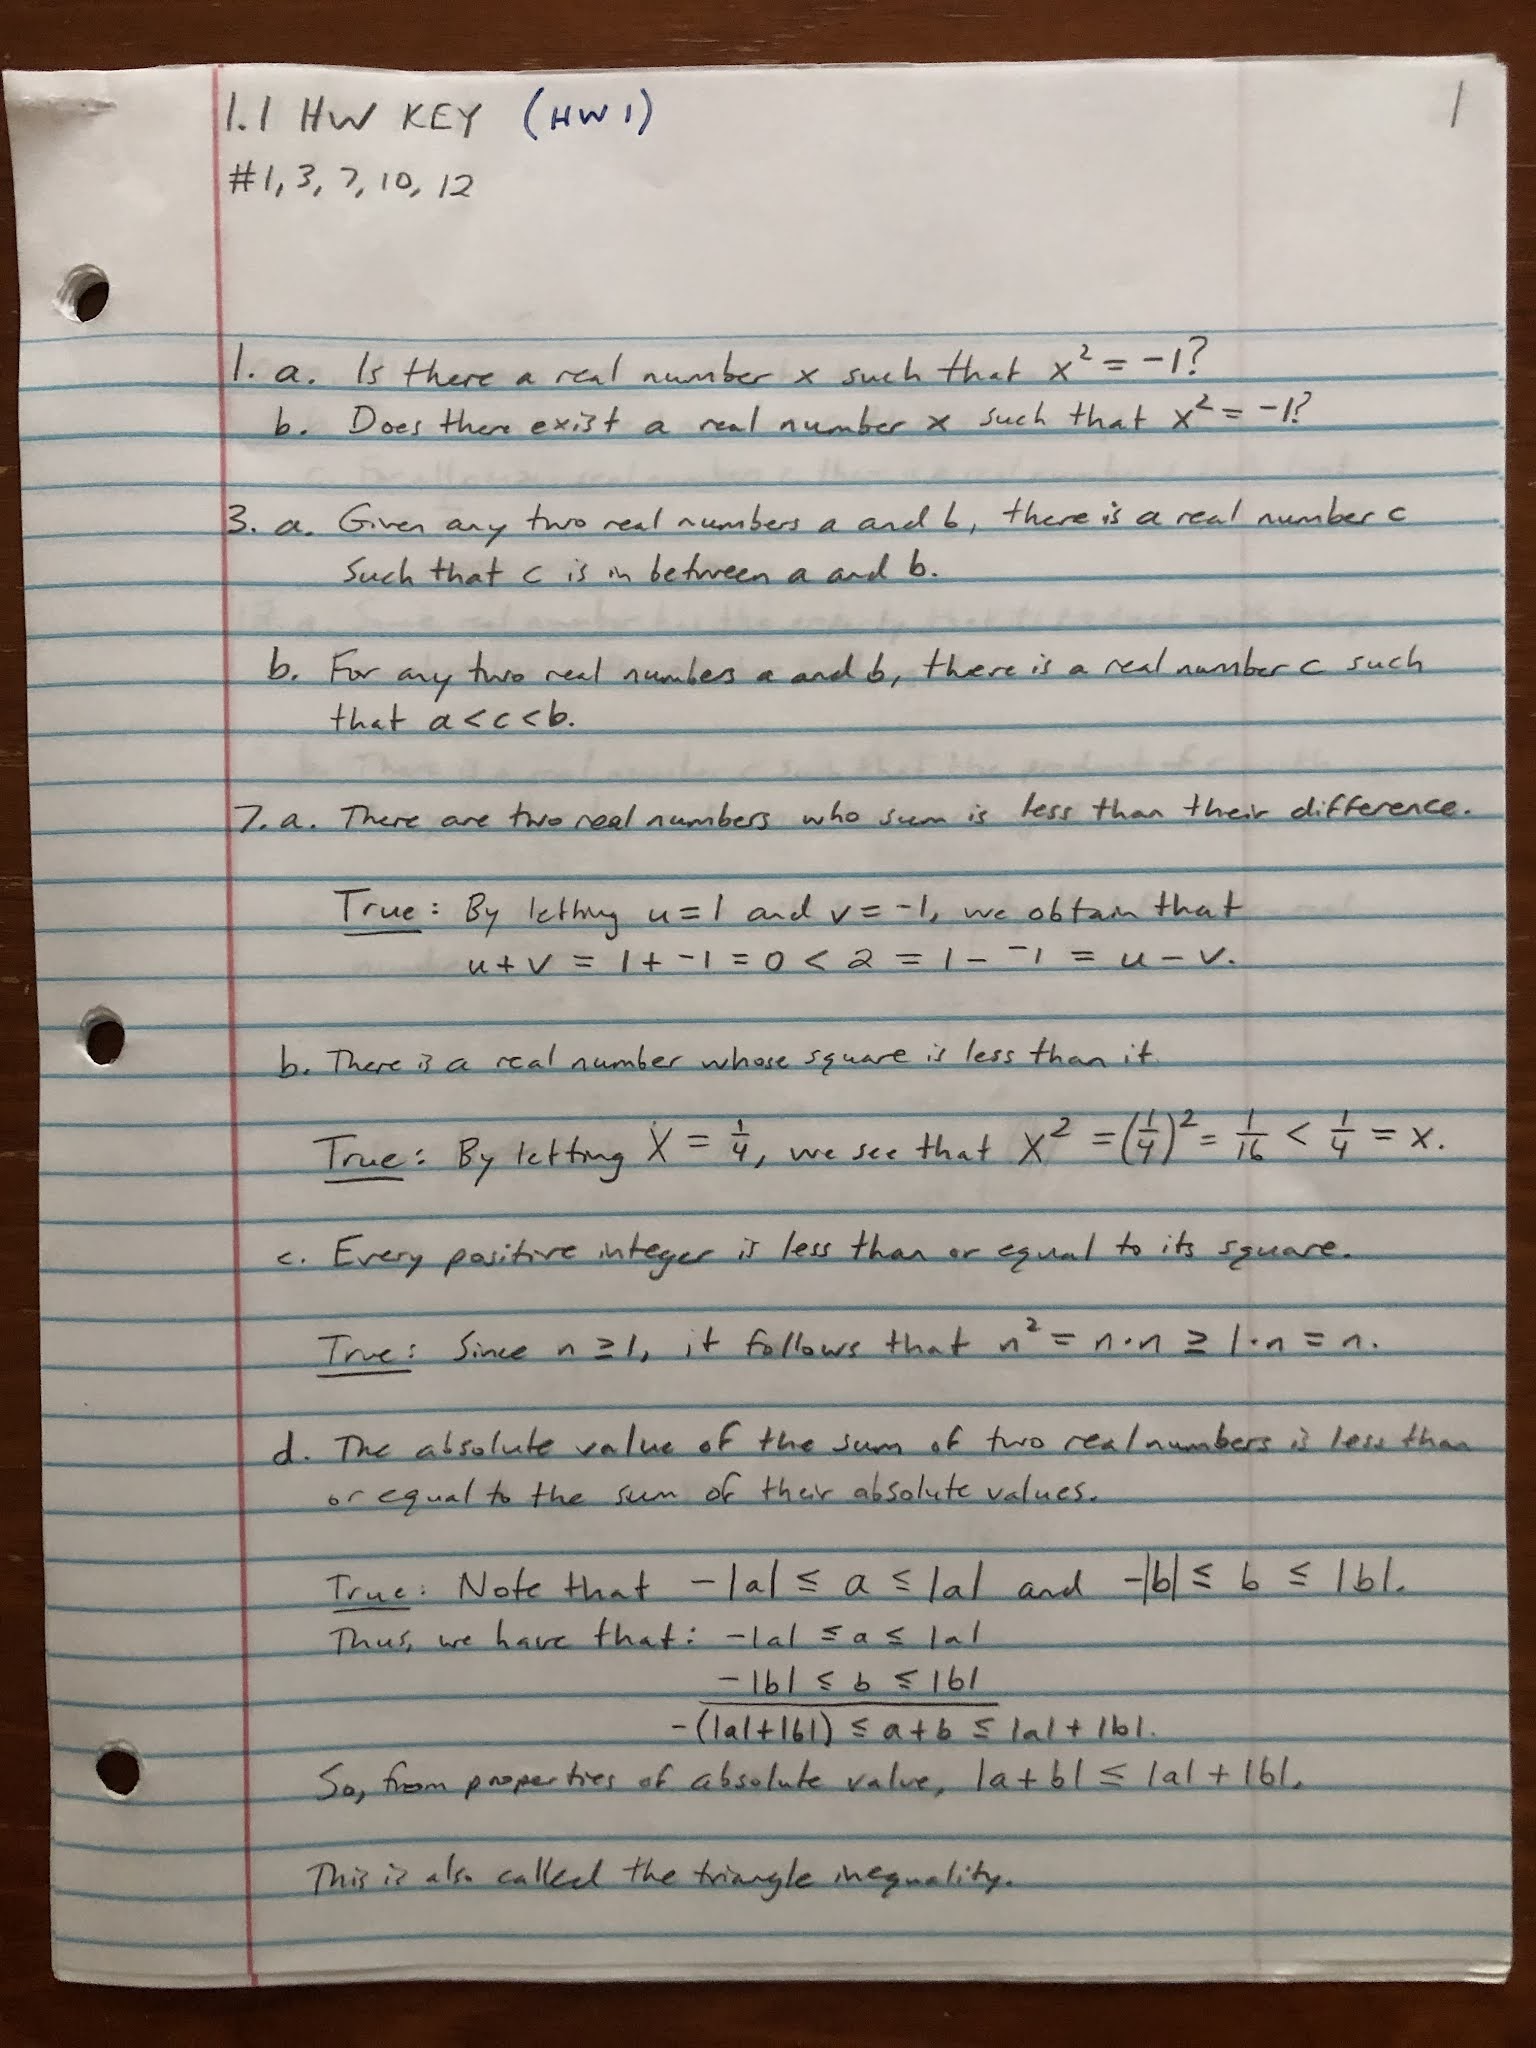 1.1 HW KEY (HW 1)
1
#1, 3, 7, 10, 12
1. a. Is there a real number x such that x² = -1?
b. Does there exist a real number x such that x² = -1?
3. a. Given any two real numbers a and b, there is a real number c
Such that c is in between a and b.
b. For any two real numbers a and b, there is a real number c such
that a<c<b.
7. a. There are two real numbers who sum is less than their difference.
True: By letting u=1 and v=-1, we obtain that
u+v = 1+-1 = 0 < 2 = 1--1 = u-v.
b. There is a real number whose square is less than it.
True: By letting X = 1/4, we see that X² = (1/4)² = 1/16 < 1/4 = x.
c. Every positive integer is less than or equal to its square.
True: Since n ≥ 1, it follows that n² = n·n ≥ 1·n = n.
d. The absolute value of the sum of two real numbers is less than
or equal to the sum of their absolute values.
True: Note that -|a| ≤ a ≤ |a| and -|b| ≤ b ≤ |b|.
Thus, we have that: -|a| ≤ a ≤ |a|
-|b| ≤ b ≤ |b|
-(|a|+|b|) ≤ a+b ≤ |a|+|b|.
So, from properties of absolute value, |a+b| ≤ |a|+|b|.
This is also called the triangle inequality.